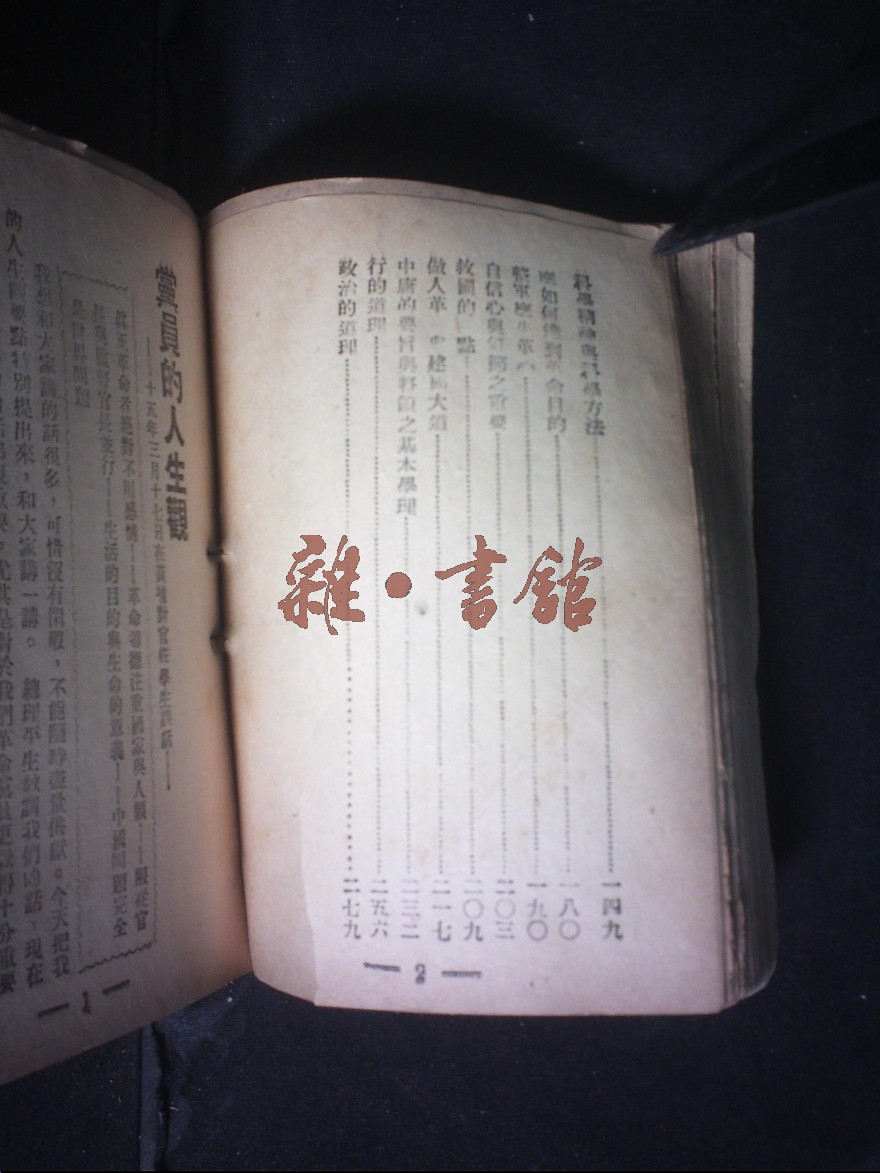 科學精神與科學方法……一四九
應如何達到革命目的……一八〇
整軍應先革心……一九〇
自信心與……之重要……二〇三
救國的 點……二〇九
做人革 建國大道……二一七
中庸的要旨與將領之基本學理……二三二
行的道理……二五六
政治的道理……二七九
— 2 —
雜·書館
黨員的人生觀
——十五年三月十七日在黃埔對官佐學生訓話——
眞正革命者絕對不用感情——革命者應注重國家與人類——服從官
長與敬官長並行——生活的目的與生命的意義——中國問題完全
是世界問題
我想和大家講的話很多,可惜沒有閒暇,不能隨時盡量供獻。今天把我
的人生觀要點特別提出來,和大家講一講。總理平生敎訓我們的話,現在
很重要。尤其是對於我們革命黨員更 得十分重要
— 1 —